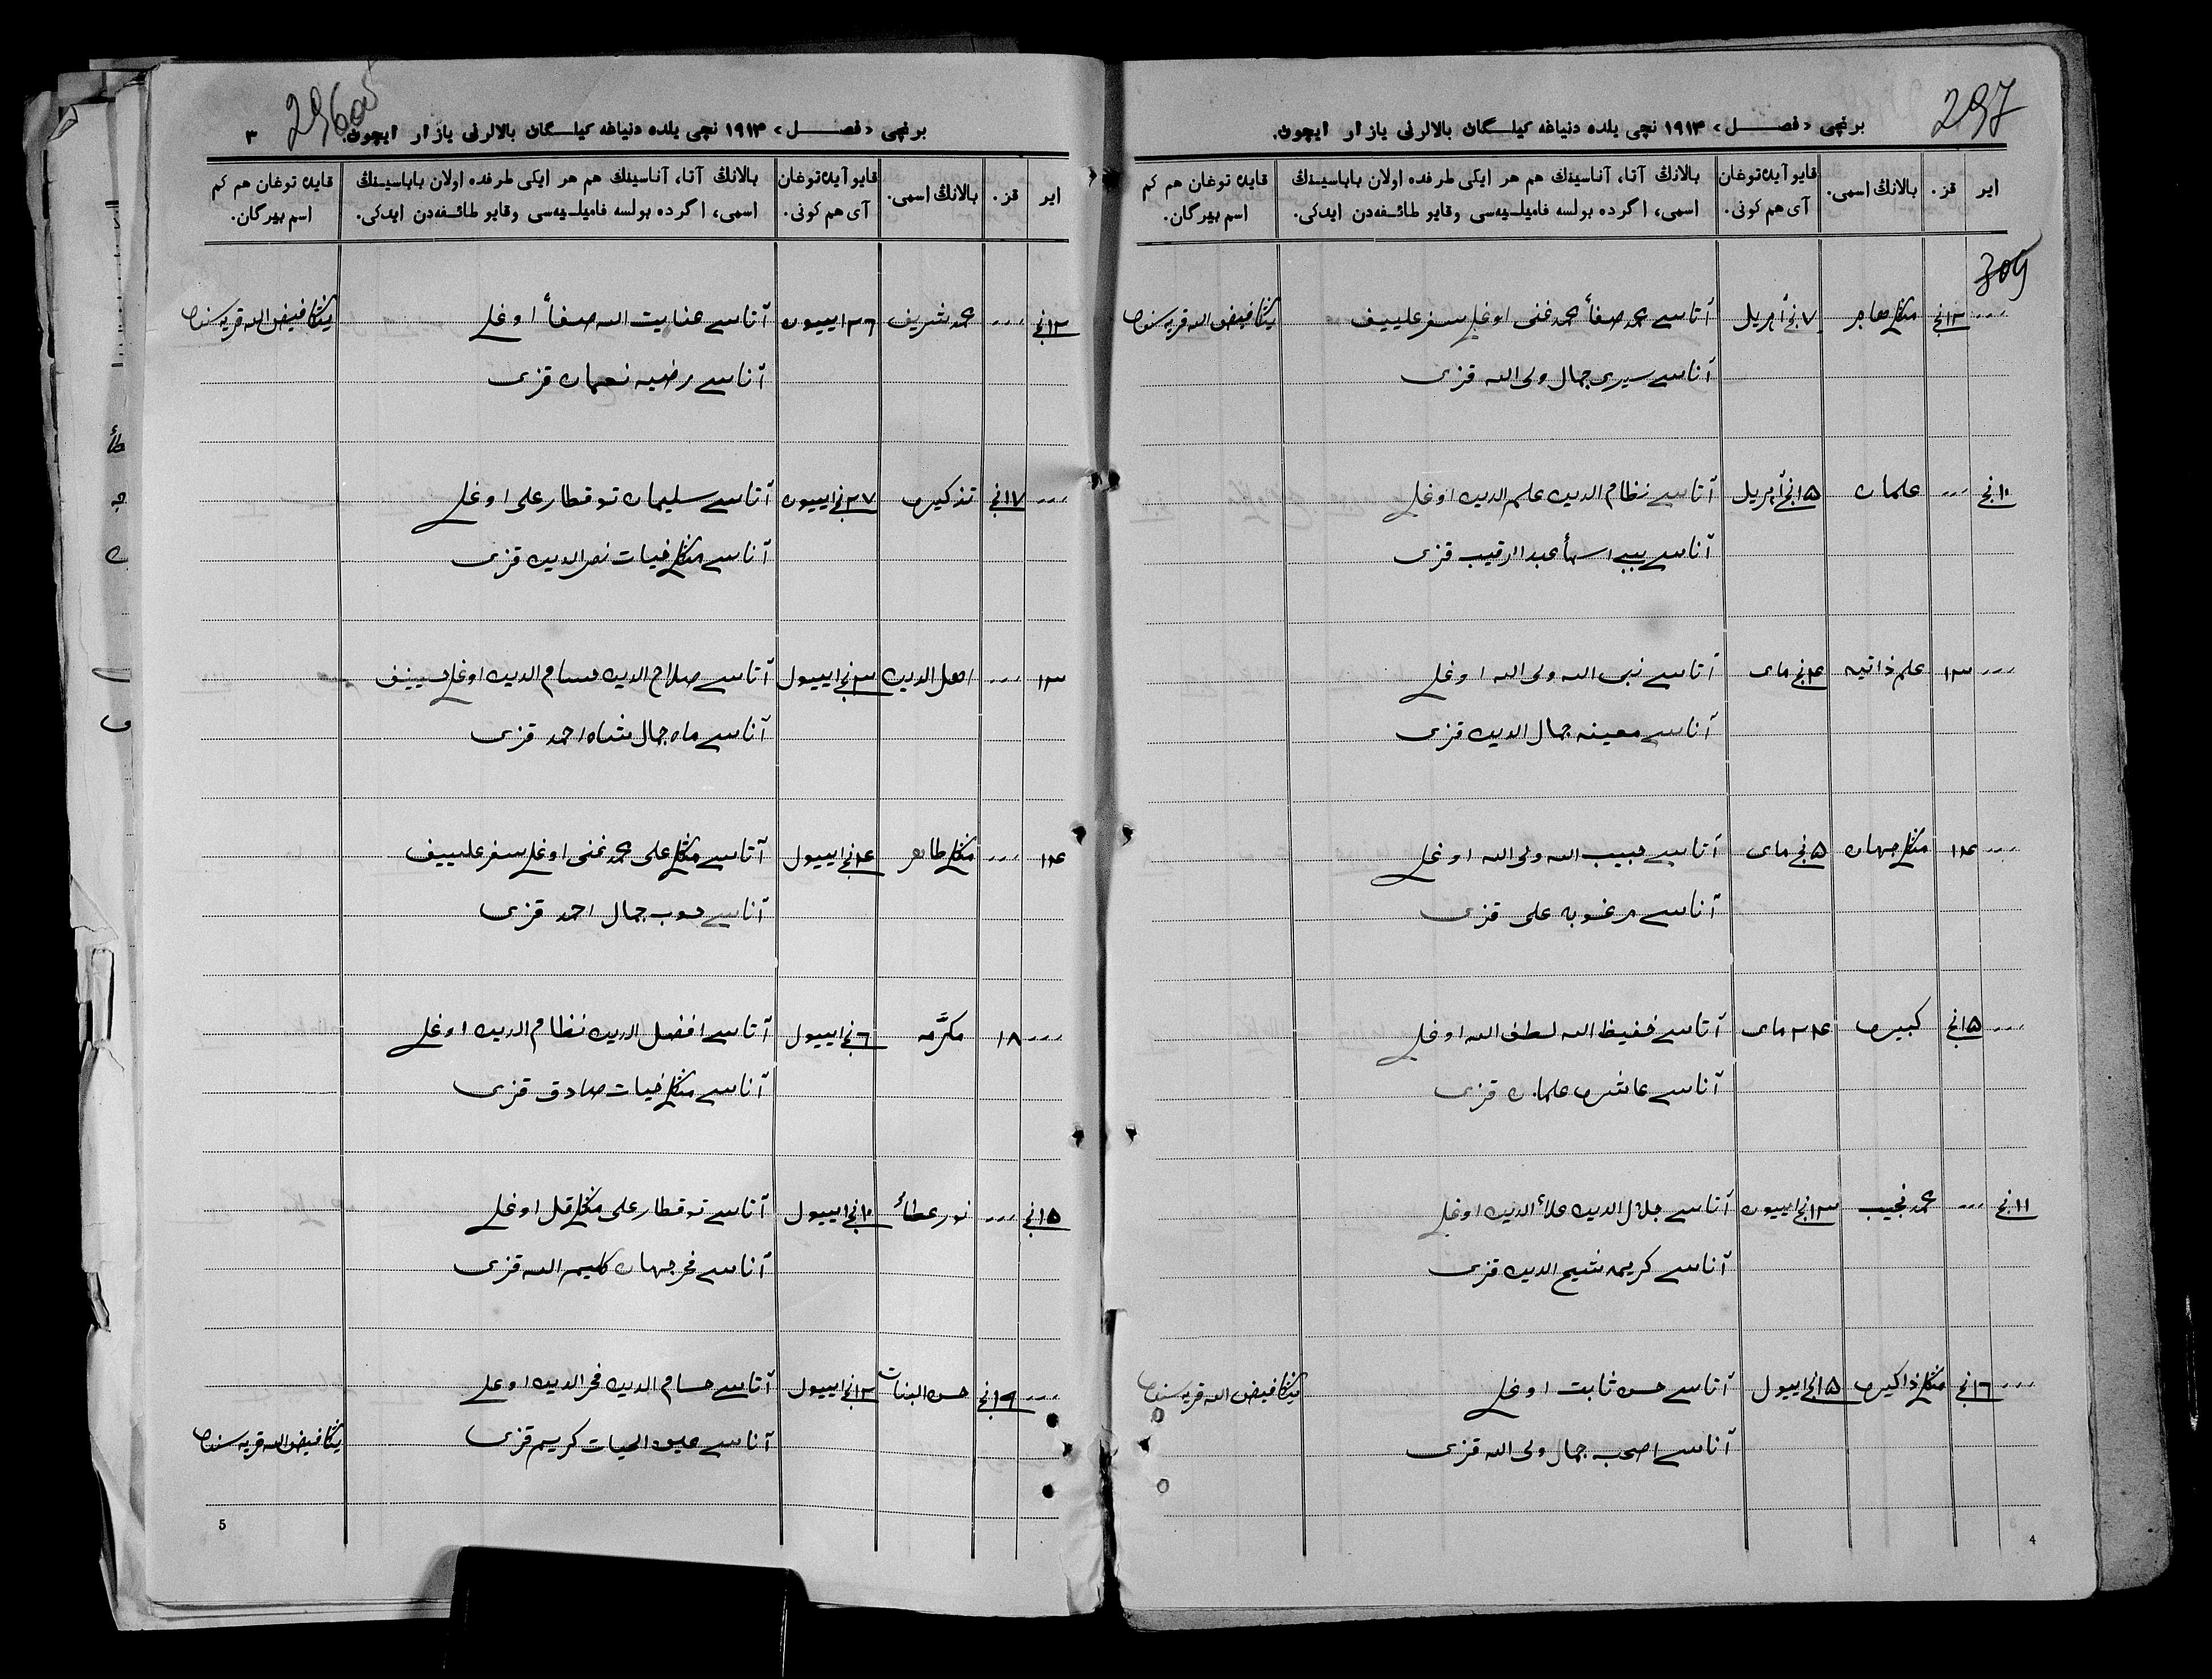 297
برنچی «فصل» ١٩١٣ نچی یلده دنیاغه کیلگان بالالرنی یازار ایچون.
ایر
قز.
بالانڭ اسمی.
قایو آیده توغان آی هم کونی.
بالانڭ آتا، آناسینڭ هم هر ایکی طرفده اولان باباسینڭ
اسمی، اگرده بولسه فامیلیه‌سی وقایو طائفه‌دن ایدکی.
قایده توغان هم کم
اسم بیرگان.
309
١٢نچی
٧نچی آپریل آتاسی محمد صفأ محمد غنی اوغلی سفرعلییف
آناسی سیری جمال ولی الله قزی
١٠نچی --- علمان ١٥نچی آپریل آتاسی نظام الدین علم الدین اوغلی
آناسی بیبی اسمأ عبدالرقیب قزی
--- ١٣ علم ذاتیه ٤نچی مای آتاسی نبی الله ولی الله اوغلی
آناسی معینه جمال الدین قزی
--- ١٤ جهان ٥نچی مای آتاسی حبیب الله ولی الله اوغلی
آناسی مرغوبه علی قزی
--- ١٥نچی کبیره ٢٤ مای آتاسی حفیظ الله لطف الله اوغلی
آناسی عاشره علمان قزی
١١نچی --- محمد نجیب ١٣نچی اییون آتاسی جلال الدین علأ الدین اوغلی
آناسی کریمه شیح الدین قزی
--- ١٦نچی ذاکیره ١٥نچی اییول آتاسی حسن ثابت اوغلی
آناسی اصحب جمال ولی الله قزی
4
296об
٣
برنچی «فصل» ١٩١٣ نچی یلده دنیاغه کیلگان بالالرنی یازار ایچون.
ایر
قز.
بالانڭ اسمی.
قایو آیده توغان آی هم کونی.
بالانڭ آتا، آناسینڭ هم هر ایکی طرفده اولان باباسینڭ
اسمی، اگرده بولسه فامیلیه‌سی وقایو طائفه‌دن ایدکی.
قایده توغان هم کم
اسم بیرگان.
١٢نچی --- محمد شریف ٢٦ اییون آتاسی عنایت الله صفأ اوغلی
آناسی رضیه نعمان قزی
--- ١٧نچی تذکیره ٢٧نچی اییون آتاسی سلیمان توقطارعلی اوغلی
آناسی حیات نصرالدین قزی
١٣ --- اهل الدین ٣نچی اییول آتاسی صلاح الدین حسام الدین اوغلی
آناسی ماه جمال شاه احمد قزی
١٤ --- طاهر ٤نچی اییول آتاسی علی محمد غنی اوغلی سفرعلییف
آناسی حوب جمال احمد قزی
--- ١٨ مکرّمه ٦نچی اییول آتاسی افضل الدین نظام الدین اوغلی
آناسی حیات صادق قزی
١٥نچی --- نور عطأ ١٠نچی اییول آتاسی توقطارعلی اوغلی
آناسی فخرجهان کلیم الله قزی
--- ١٩نچی حسن البنات ١٢نچی اییول آتاسی حسام الدین فخرالدین اوغلی
آناسی عین الحیات کریم قزی
5